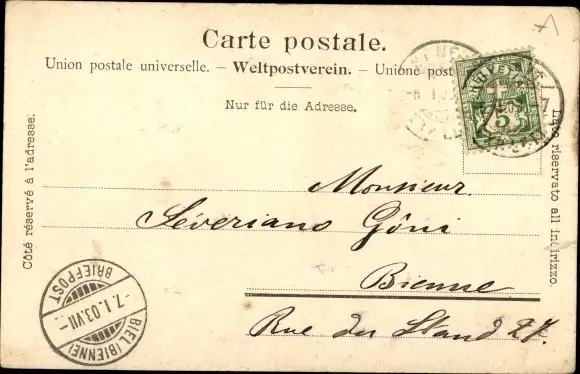 Carte postale.
Union postale universelle. – Weltpostverein. – Unione post
Nur für die Adresse.
Côté réservé à l'adresse.
Lato riservato all' indirizzo.
HELVETIA
5
Monsieur.
Séveriano Göni
Bienne
Rue du Stand 27.
BRIEFPOST
-7.1.03.VII-
BIEL (BIENNE)